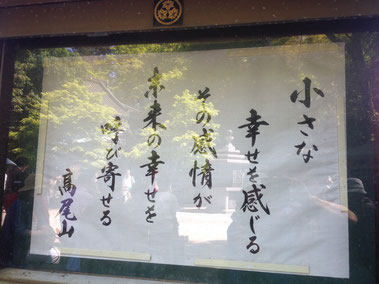 小さな
幸せを感じる
その感情が
未来の幸せを
呼び寄せる
高尾山